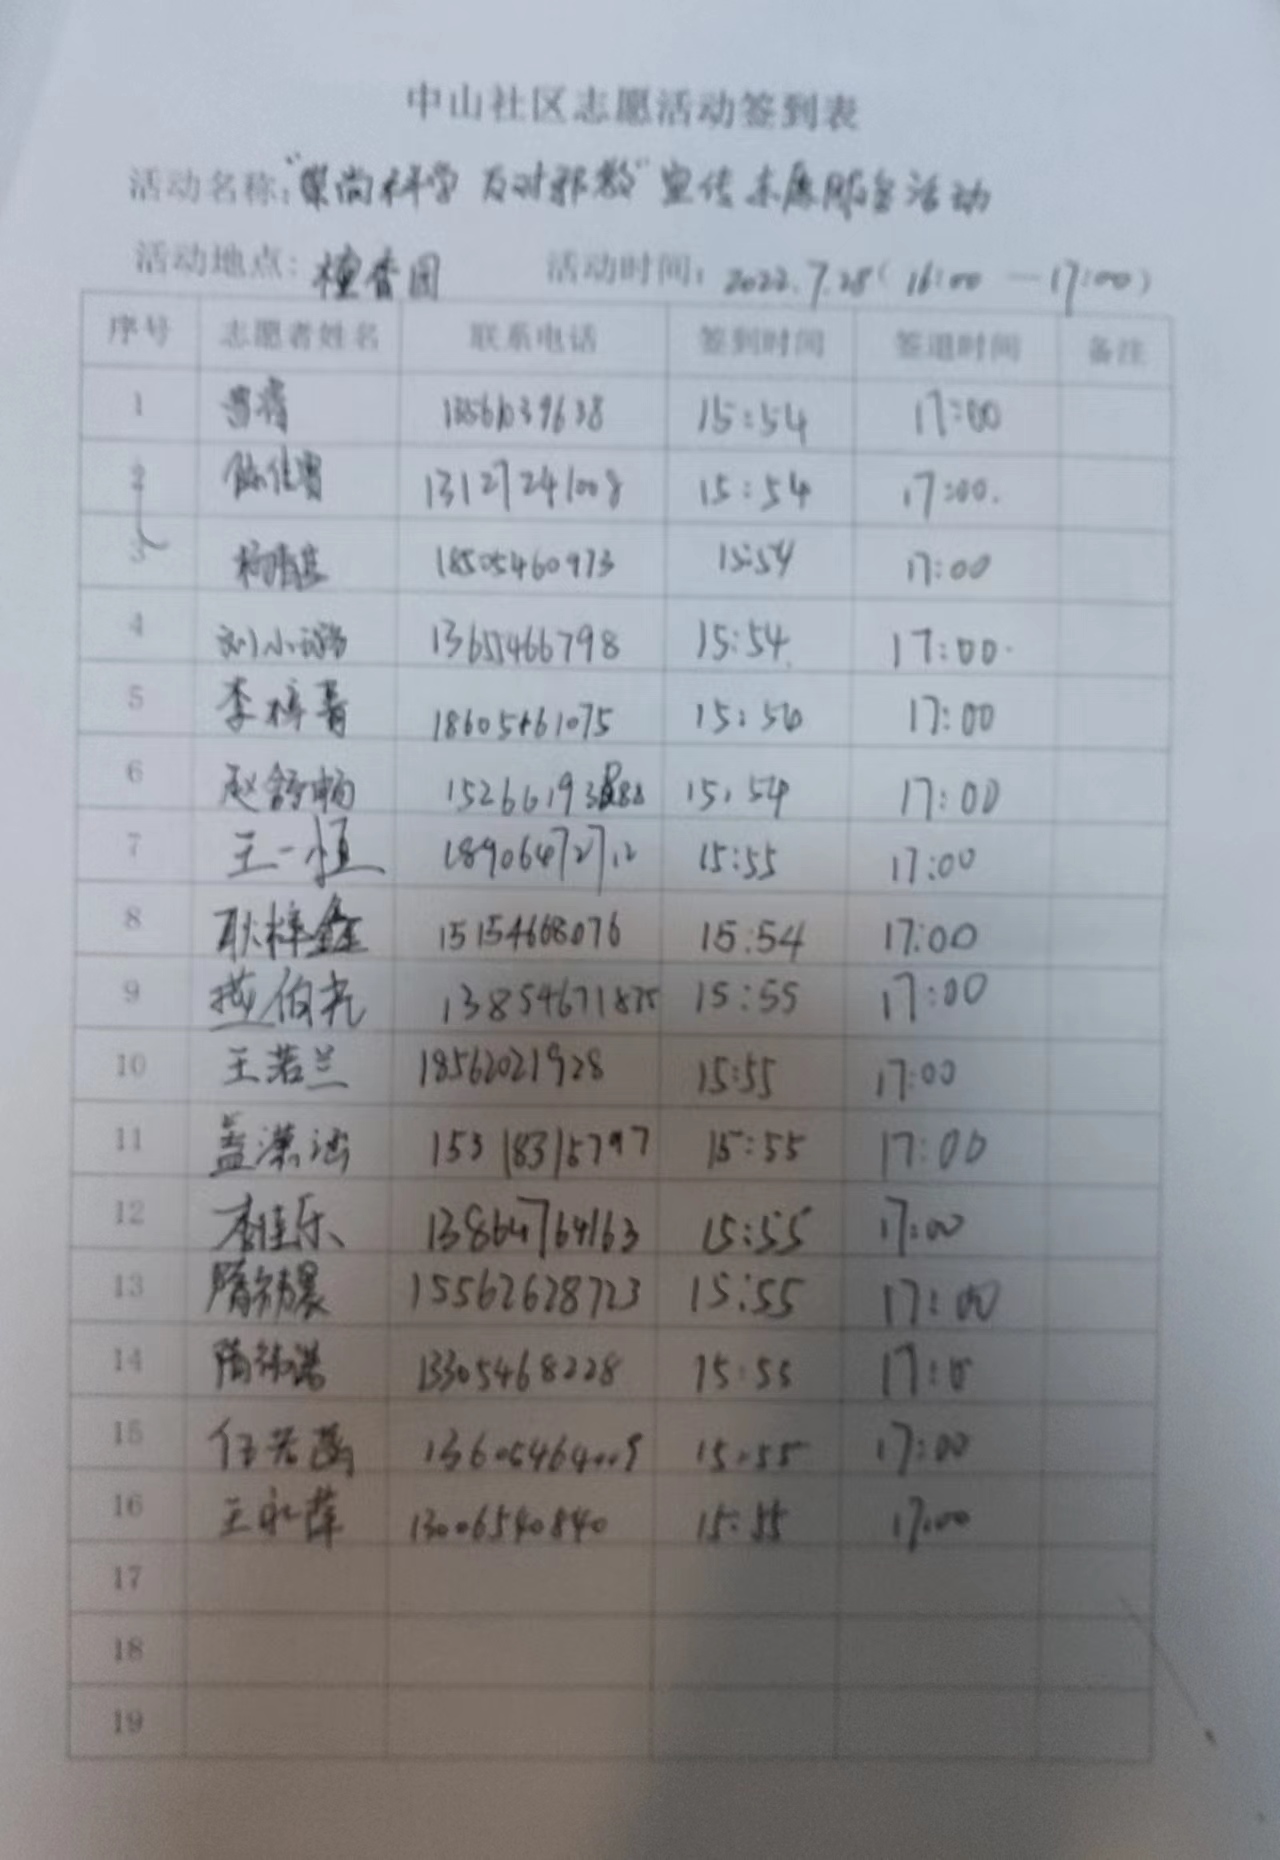 中山社区志愿活动签到表
活动名称:"崇尚科学 反对邪教"宣传志愿服务活动
活动地点: 檀香园 活动时间: 2022.7.28(16:00—17:00)
序号 志愿者姓名 联系电话 签到时间 签退时间 备注
1 15:54 17:00
2 13127241008 15:54 17:00.
3 18505460973 15:54 17:00
4 刘小璐 13655466798 15:54. 17:00.
5 李梓菁 18605461075 15:54 17:00
6 赵舒畅 15:54 17:00
7 王一恒 18906472712 15:55 17:00
8 耿梓鑫 15154668076 15:54 17:00
9 燕伯光 13854671875 15:55 17:00
10 王若兰 18562021928 15:55 17:00
11 盖潇涵 15318315797 15:55 17:00
12 李佳乐 13864764163 15:55 17:00
13 隋祎晨 15562628723 15:55 17:00
14 13305468228 15:55
15 任若菡 13605464009 15:55 17:00
16 王永萍 13006540840 15:55 17:00
17
18
19